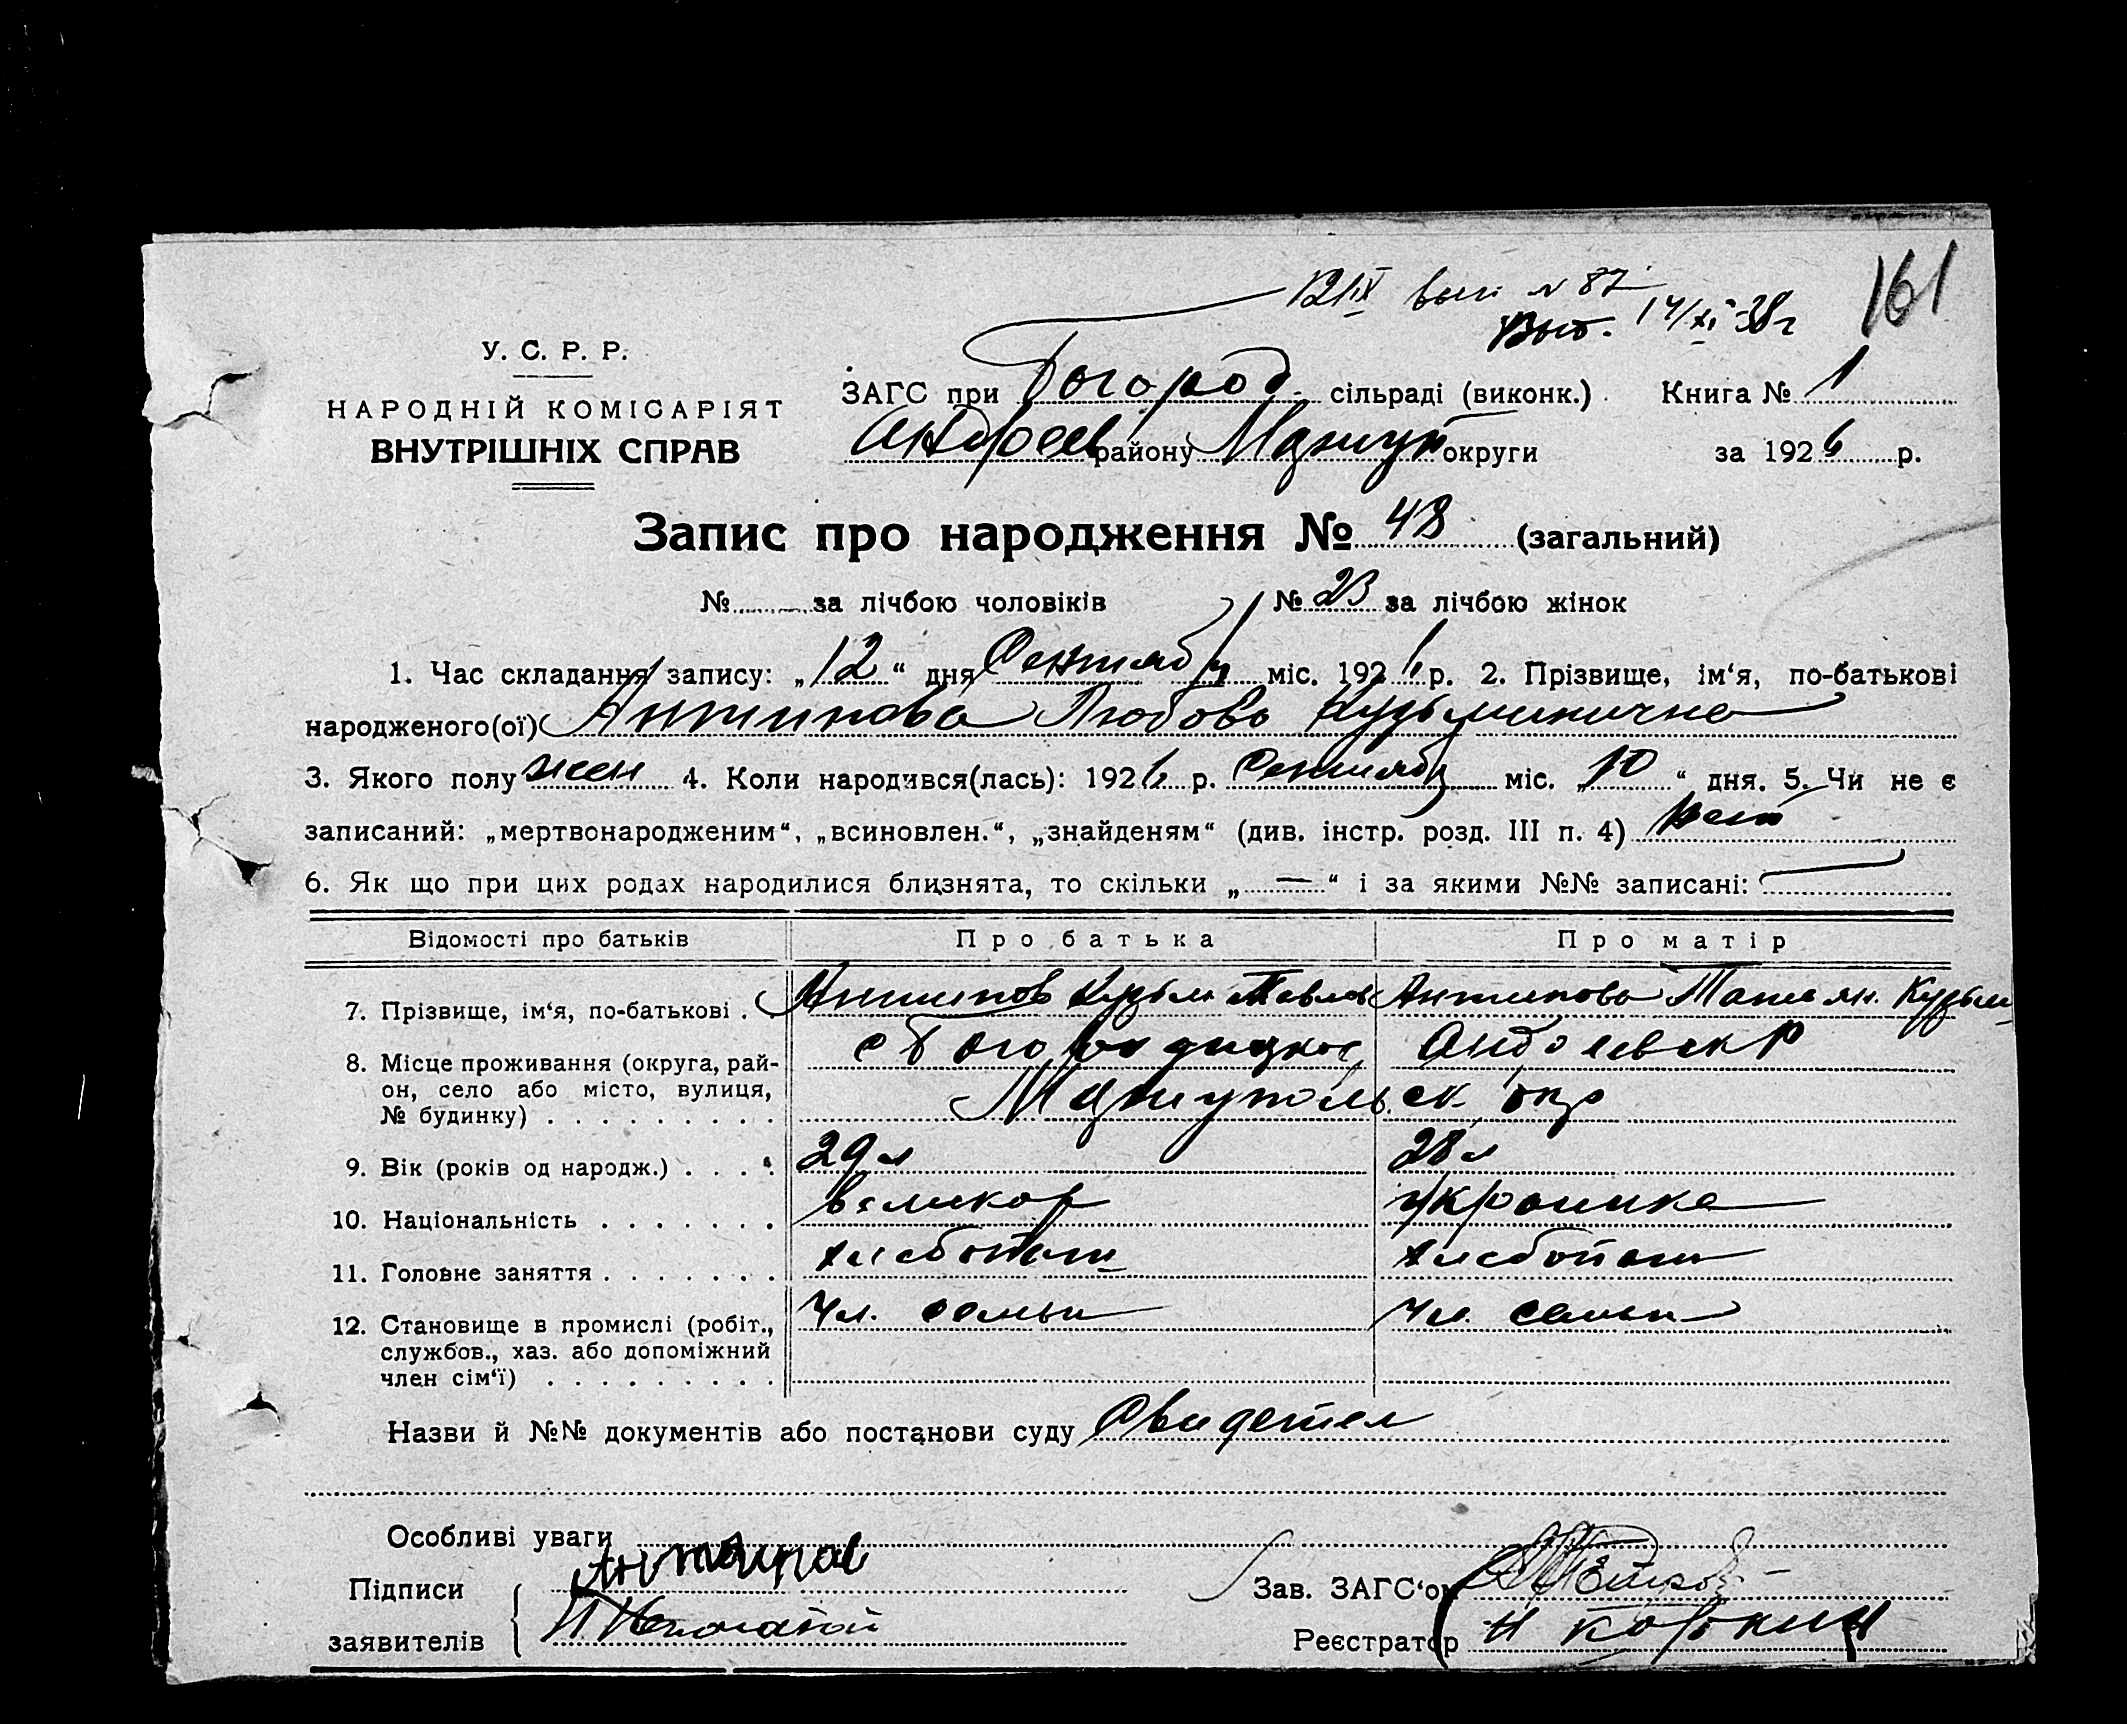 12/IX вып. N 87
Вып. 14/XI-38 г
161
У. С. Р. Р.
НАРОДНІЙ КОМІСАРІЯТ
ВНУТРІШНІХ СПРАВ
ЗАГС при Богород. сільраді (виконк.) Книга № 1
Андреев району Мариуп округи за 1926 р.
Запис про народження № 48 (загальний)
№ за лічбою чоловіків № 23 за лічбою жінок
1. Час складання запису: „12“ дня Сентября міс. 1926 р. 2. Прізвище, ім‘я, по-батькові
народженого(ої) Антипова Любовь Кузьминична
3. Якого полу жен 4. Коли народився(лась): 1926 р. Сентября міс. „10“ дня. 5. Чи не є
записаний: „мертвонародженим“, „всиновлен.“, „знайденям“ (див. інстр. розд. III п. 4) нет
6. Як що при цих родах народилися близнята, то скільки „—“ і за якими №№ записані:
Відомості про батьків Про батька Про матір
7. Прізвище, ім‘я, по-батькові . . Антипов Кузьм Павлов Антипова Татьян. Кузьм
8. Місце проживання (округа, рай- с Богородицкое Андреевск р
он, село або місто, вулиця, Мариупольск окр
№ будинку) . . . . . . . . .
9. Вік (років од народж.) . . . . 29 л 28 л
10. Національність . . . . . . . великор украинка
11. Головне заняття . . . . . . . хлебопаш хлебопаш
12. Становище в промислі (робіт., чл. семьи чл. семьи
службов., хаз. або допоміжний
член сім‘ї) . . . . . . . . .
Назви й №№ документів або постанови суду Свидетел
Особливі уваги
Підписи Антипов
Зав. ЗАГС‘ом
заявителів
Реєстратор Н Коркин